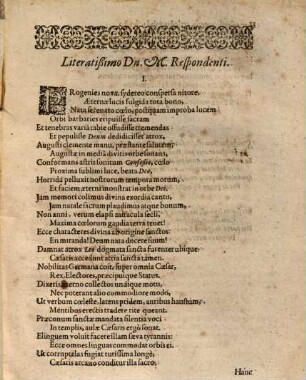 Literatißimo Dn. M. Respondenti.
I.
PRogenies novæ sydereo conspersa nitore,
Æternæ lucis fulgida tota bono,
Nata serenato cœlo, postquam improba lucem
Orbi barbaries eripuisse sacram
Et tenebras variè ab iste offudisse tremendas
Et pepulisse Deum dedidicisset atrox,
Augusti clemente manu, præstante salutem
Augustæ in mediâ divite orbe sonans,
Conformans astris fonitum Confessio, cœlo
Proxima sublimi luce, beata Deo,
Horrida pelluxit nostrorum tempora morum,
Et faciem æterni monstrat in orbe Dei.
Jam memorat colimus divina exordia cantu,
Jam natale sacrum plaudimus atque bonum,
Non anni: verum elapsi miracula secli,
Maxima cœlorum gaudia terra tenet!
Ecce characteres divinâ ab origine sanctos:
En miranda! Deam nata docere suum!
Damnat atrox Leo dogmata sancta fatentur ubique:
Cæsaris accedunt atria sancta tamen.
Nobilitas Germana coit, super omnia Cæsar,
Rex, Electores, præcipuique Status.
Dixeris æterno collectos unaque motu,
Nec poterant alio commodiore modo,
Ut verbum cœleste, latens pridem, auribus haustum,
Mentibus erectis tradere rite queant.
Præconum sanctæ mandata silentia voci
In templis, aulæ Cæsaris ergò sonat.
Elinguem voluit facere illam sæva tyrannis:
Ecce omnes linguas commodat orbis ei.
Ut corruptelas fugiat tutissima longè,
Cæsaris arcano conditur illa sacro,
Hanc